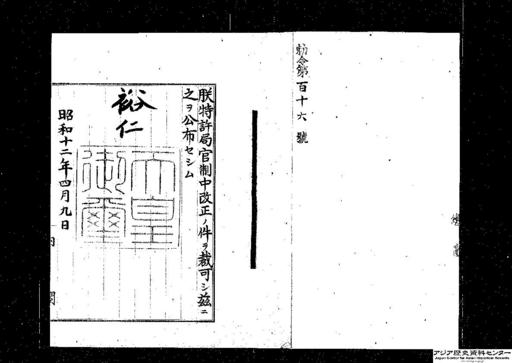 勅令第百十六號
朕特許局官制中改正ノ件ヲ裁可シ茲ニ
之ヲ公布セシム
裕仁
天皇御璽
昭和十二年四月九日
内閣
アジア歴史資料センター
Japan Center for Asian Historical Records